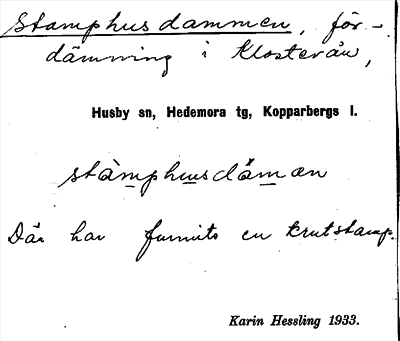 Stamphusdammen, för-
dämning i Klosterån,
Husby sn, Hedemora tg, Kopparbergs l.
stàmphusdåman
Där har funnits en krutstamp.
Karin Hessling 1933.